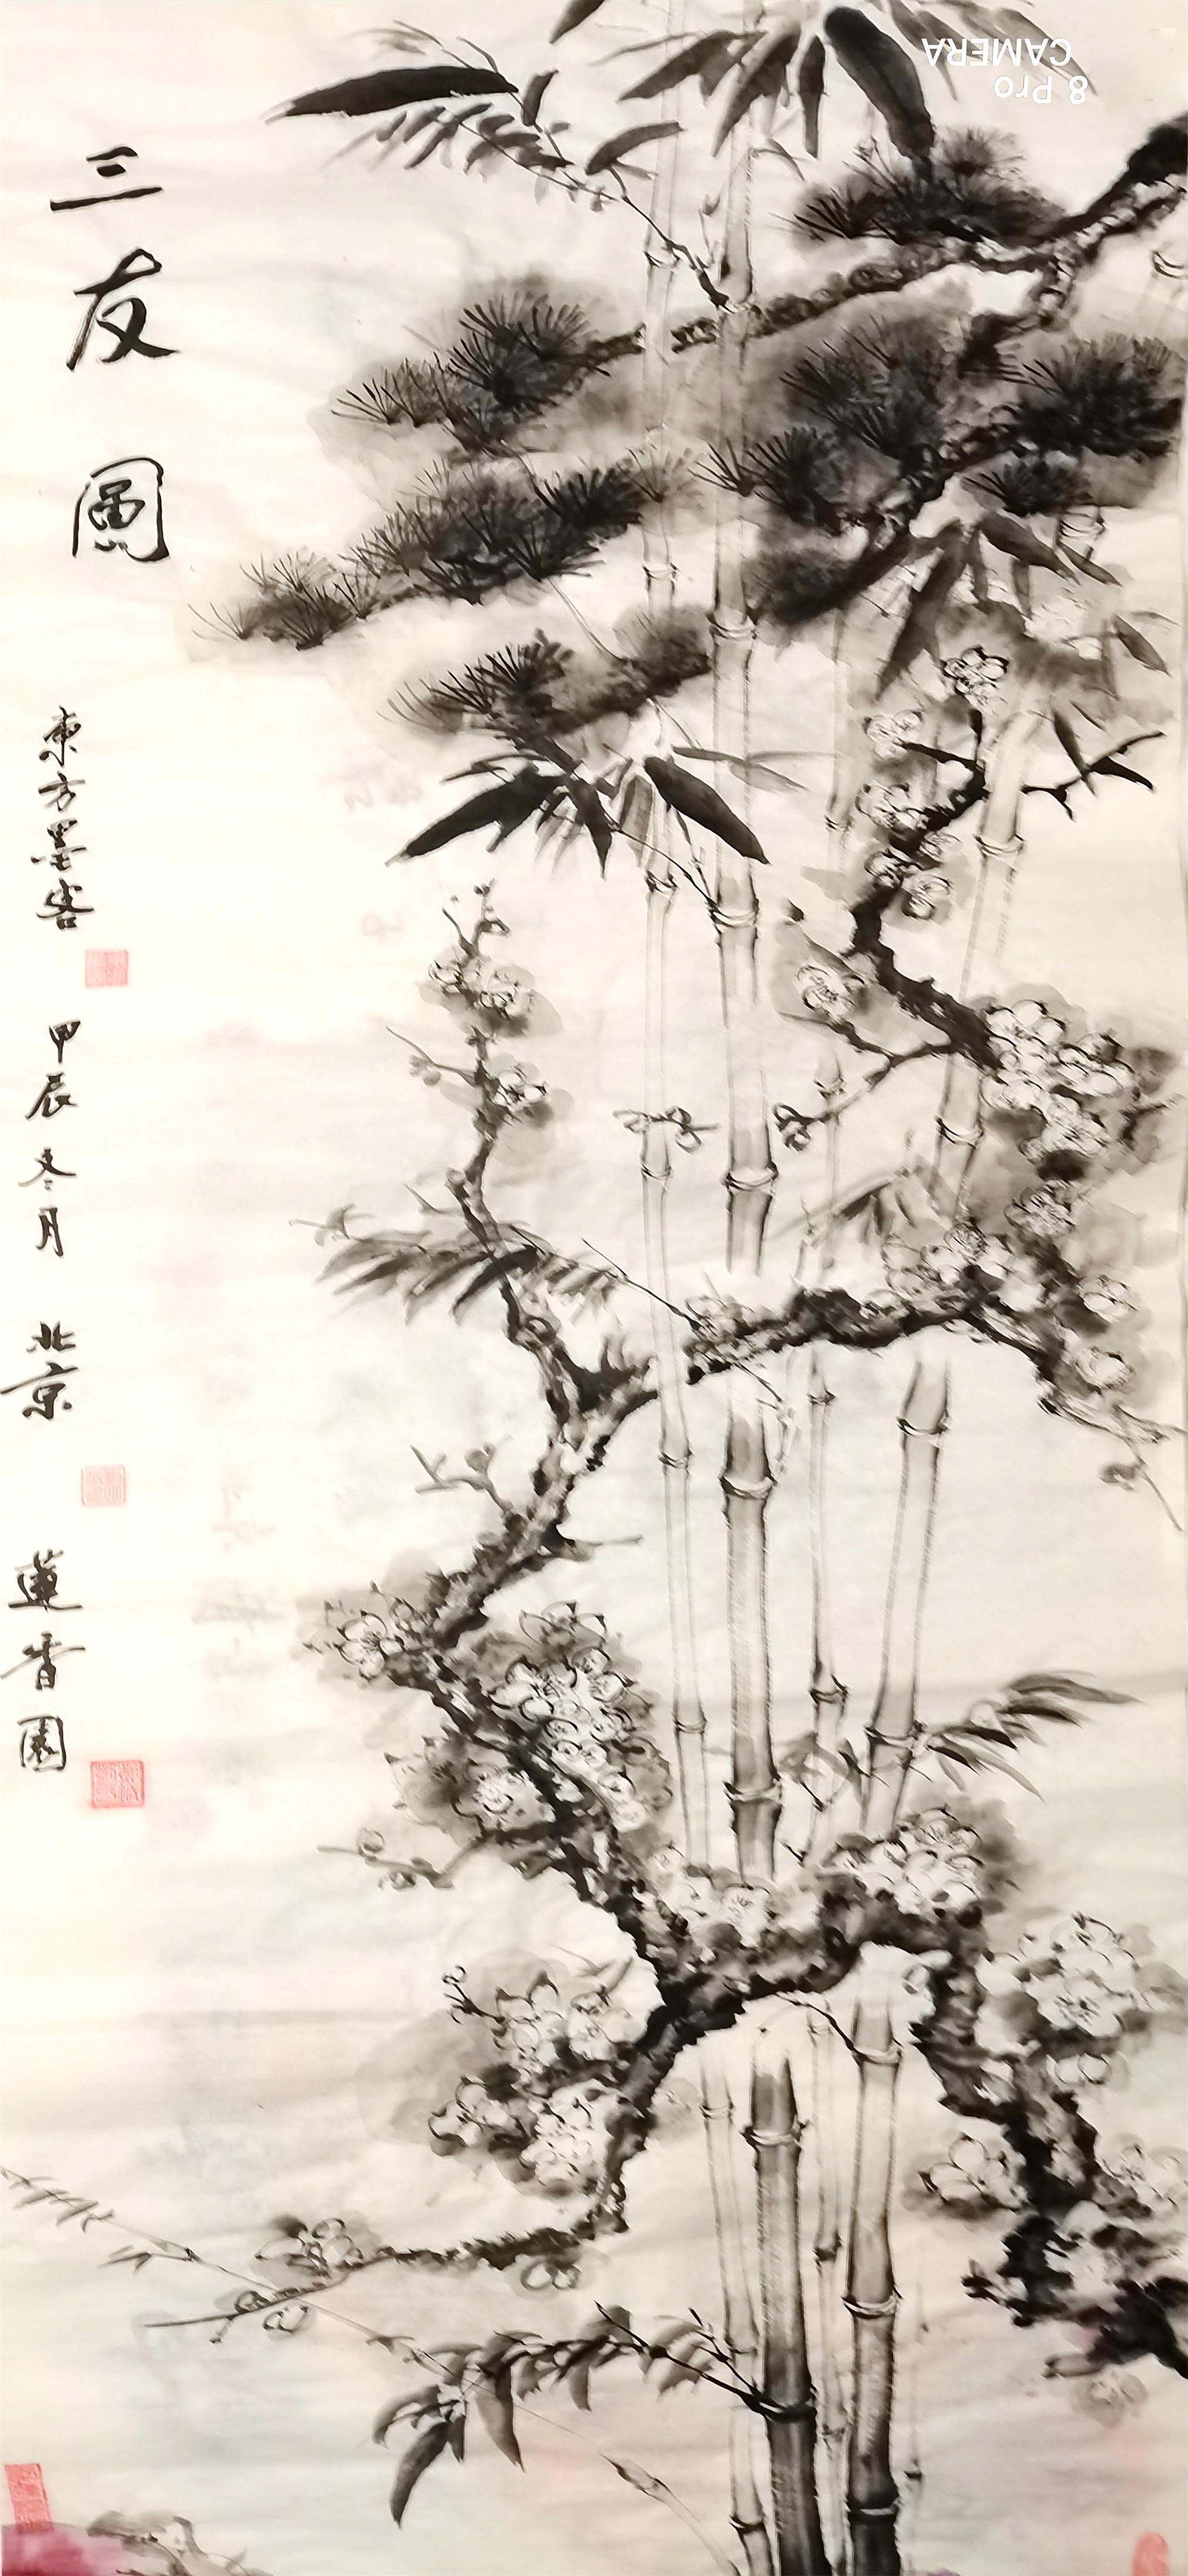 三友圖
東方墨客
甲辰冬月
北京
蓮香園
8 Pro
CAMERA